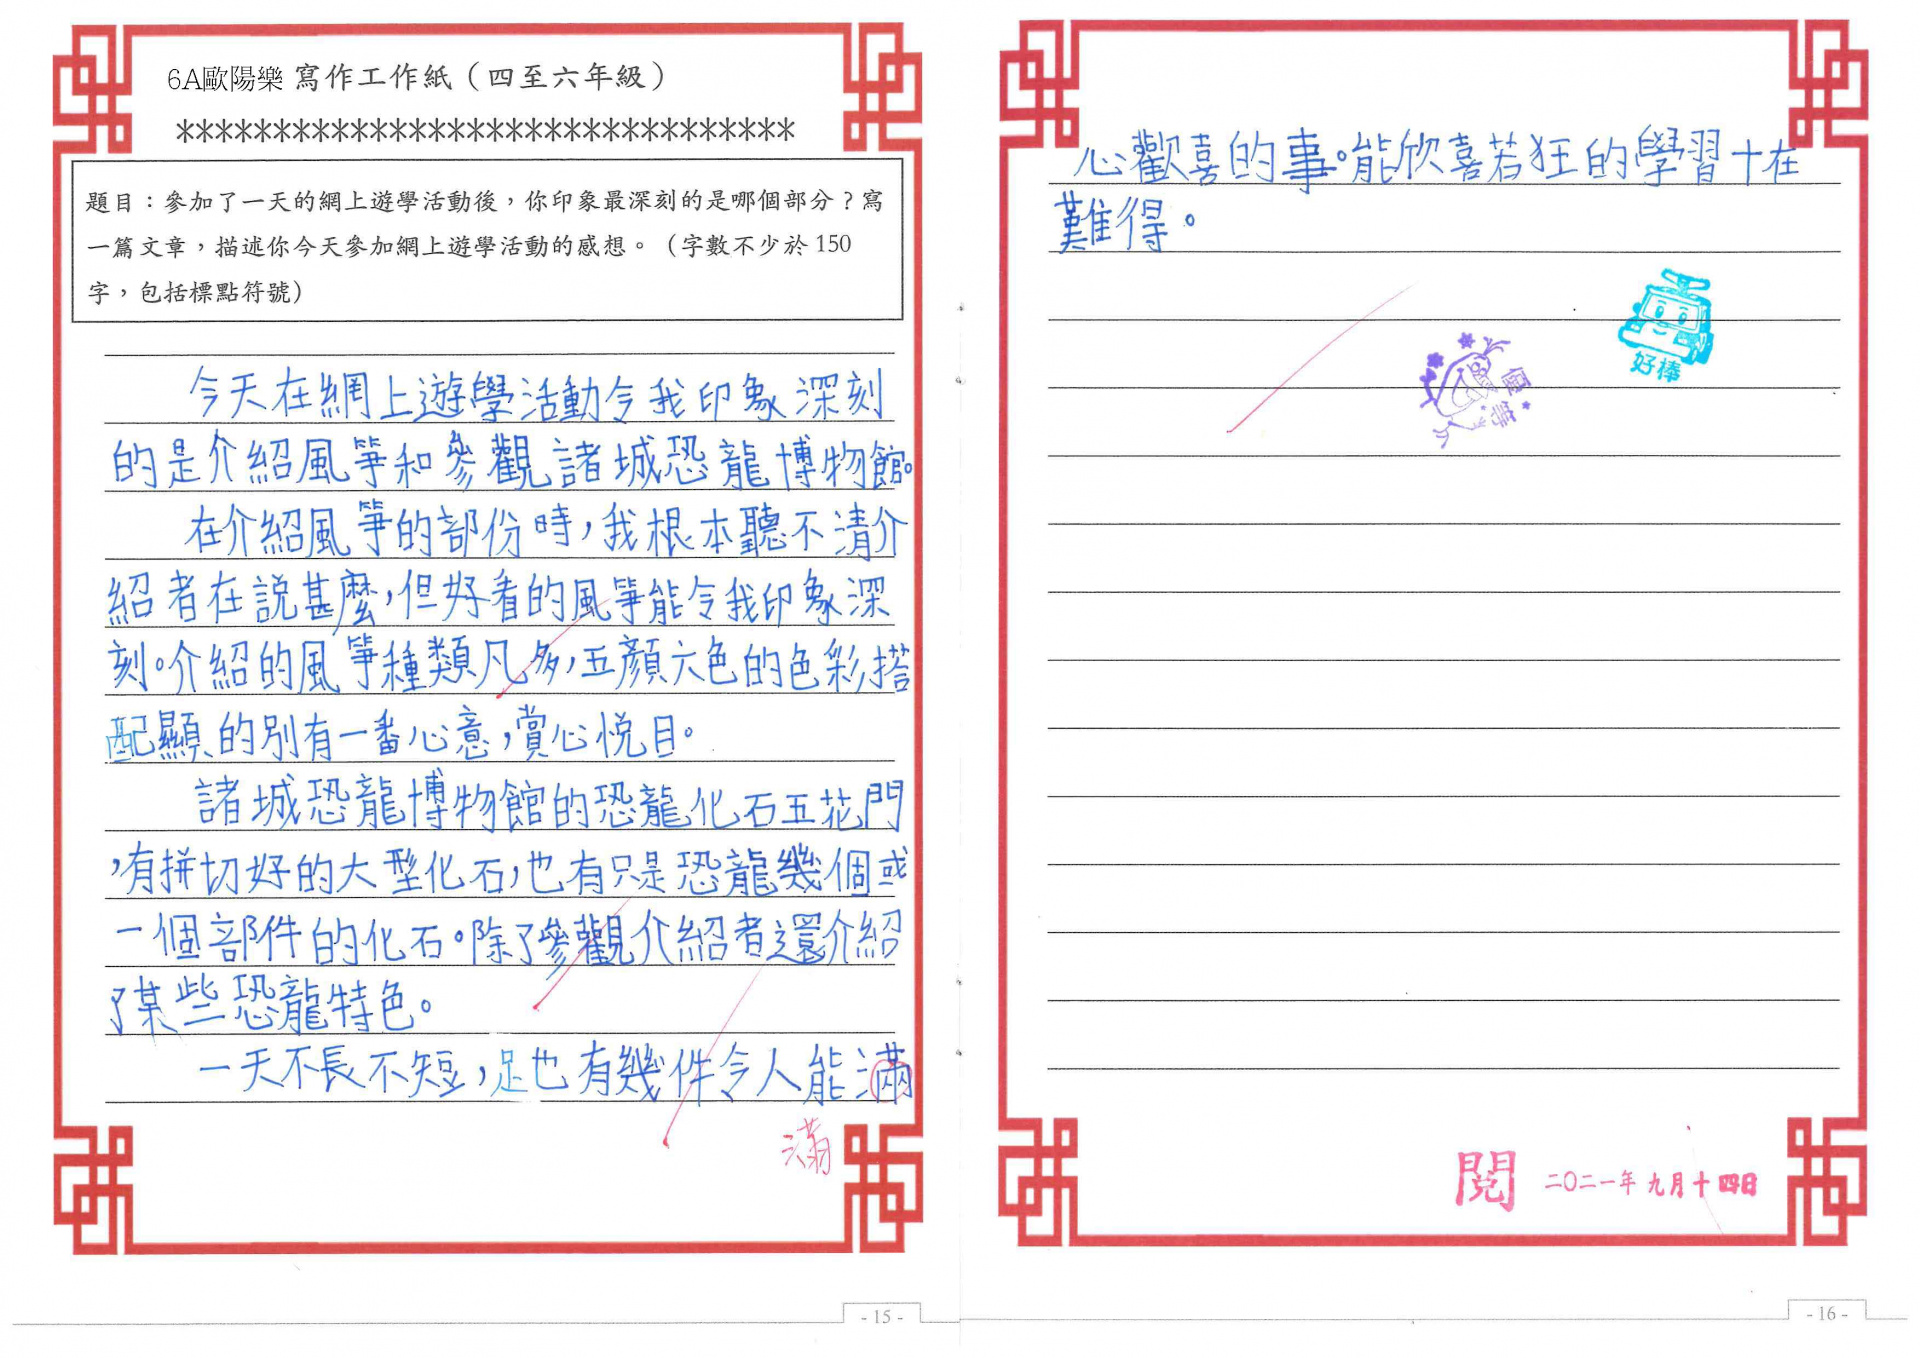 6A歐陽樂 寫作工作紙（四至六年級）
********************************
題目：參加了一天的網上遊學活動後，你印象最深刻的是哪個部分？寫
一篇文章，描述你今天參加網上遊學活動的感想。（字數不少於 150
字，包括標點符號）
今天在網上遊學活動令我印象深刻
的是介紹風箏和參觀諸城恐龍博物館。
在介紹風箏的部份時，我根本聽不清介
紹者在說甚麼，但好看的風箏能令我印象深
刻。介紹的風箏種類凡多，五顏六色的色彩搭
配顯的別有一番心意，賞心悅目。
諸城恐龍博物館的恐龍化石五花門
，有拼切好的大型化石，也有只是恐龍幾個或
一個部件的化石。除了參觀介紹者還介紹
了某些恐龍特色。
一天不長不短，足也有幾件令人能滿
滿
- 15 -
心歡喜的事。能欣喜若狂的學習十在
難得。
好棒
優等
閱 二〇二一年九月十四日
- 16 -